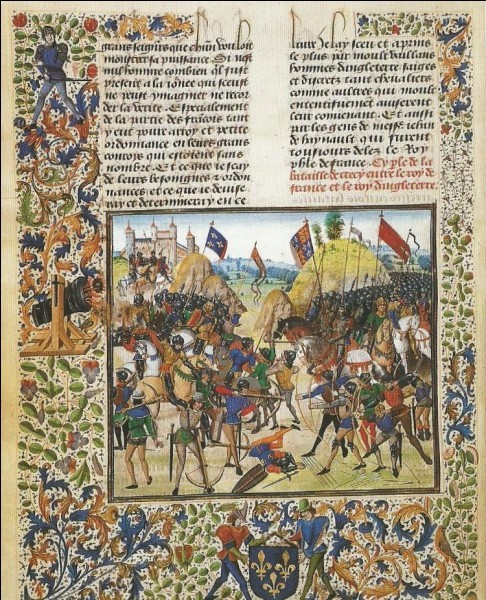 grans seigns que chūn vouloit
monstrer sa puissance Si nest
nul homme combien q̄l fust
present a la iōnee qui sceust
ne peust ymaginer ne recor
der la verite. Especialement
de la partie des francois tant
y eut pouure arroy et petite
ordonnance en leurs grans
conrois qui estoient sans
nombre. Et ce que ie scay
de leurs besoingnes & ordon
nances et ce que ie deuise
ray et determineray en ce
liure Ie lay sceu et aprins
le plus par moult vaillans
hommes dangleterre saiges
et discrets tant cheualiers
comme aultres qui moult
ententifuement auiserent
leur conuenant. Et aussi
par les gens de messe iehan
de haynault qui furent
tousiours delez le Roy
phle de france. Cy ple de la
bataille de crecy entre le roy de
france et le roy dangleterre.